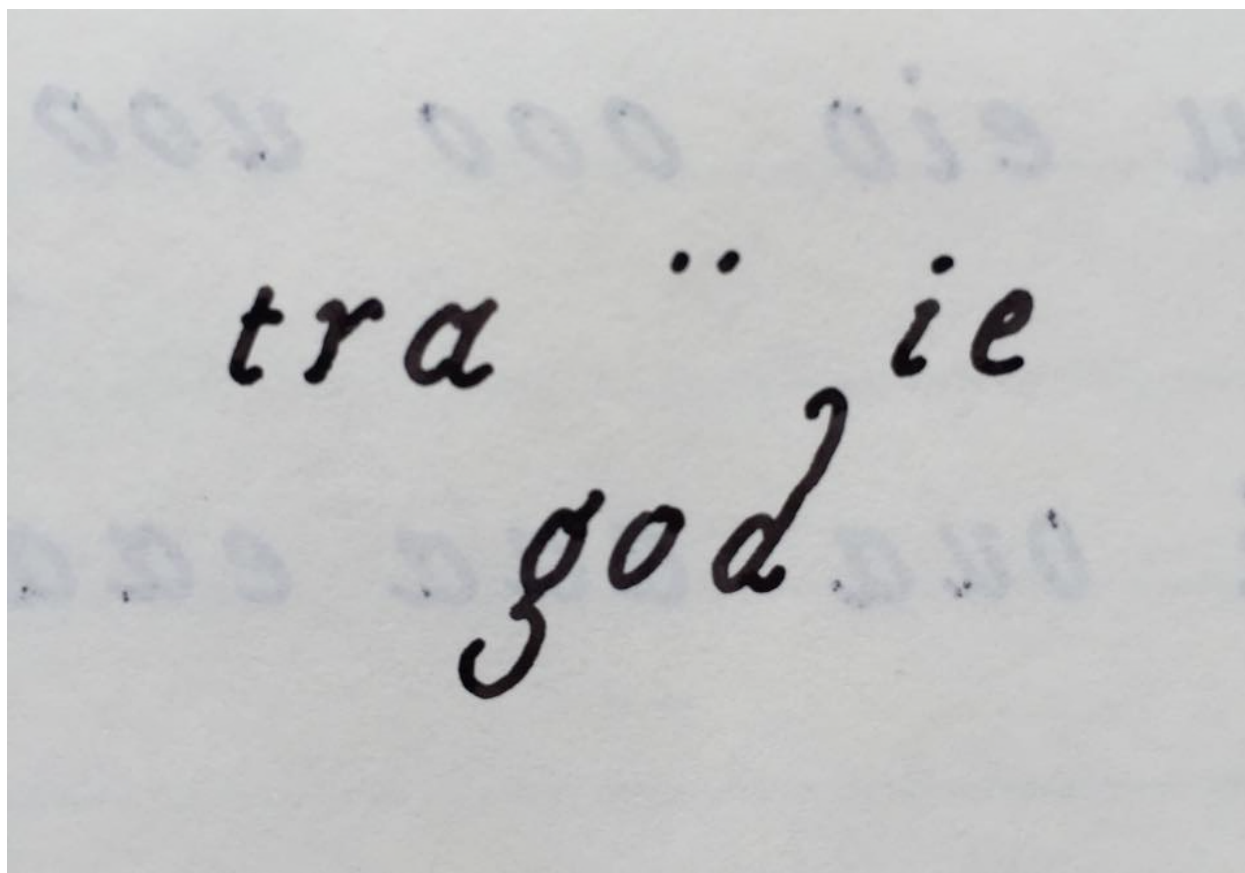 tra ¨ ie
god